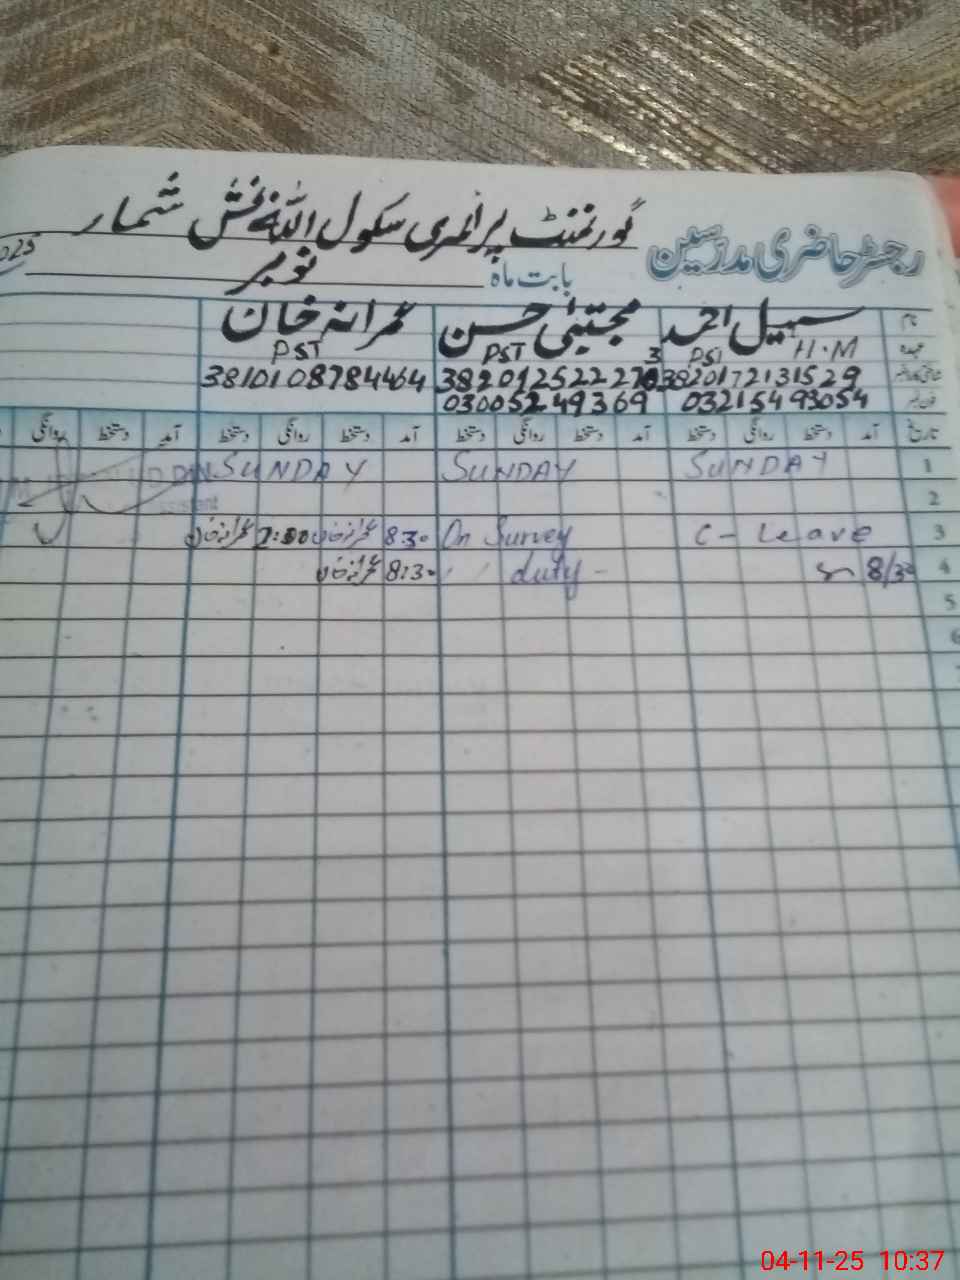 گورنمنٹ پرائمری سکول اللہ بخش شمار
رجسٹر حاضری مدرسین
بابت ماہ نومبر
نام سہیل احمد مجتبیٰ حسن عمرانہ خان
عہدہ H.M PST PST PST
3820172131529 3810108784464
03215493054 03005249369
تاریخ آمد دستخط روانگی دستخط آمد دستخط روانگی دستخط آمد دستخط روانگی دستخط آمد دستخط روانگی
1 SUNDAY SUNDAY SUNDAY
2
3 C - Leave On Survey 8:30 عمرانہ خان 2:00 عمرانہ خان
4 8/30 duty - 8:30 عمرانہ خان
5
6
04-11-25 10:37